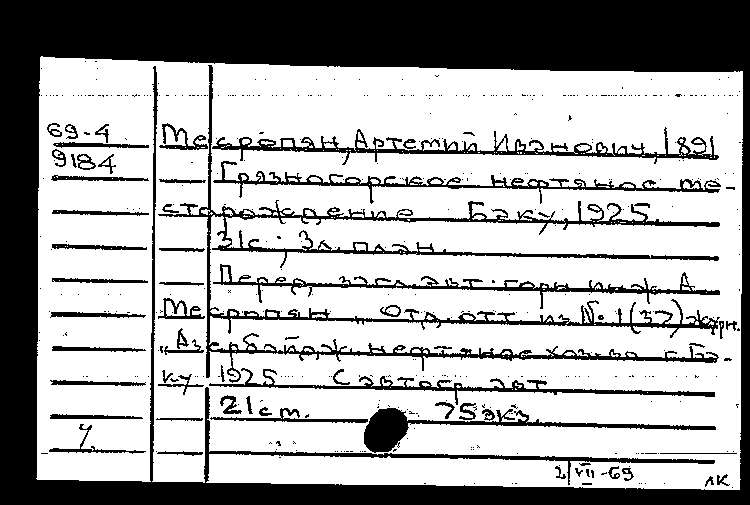 69-4
9184
Месропян, Артемий Иванович, 1891
Грязногорское нефтяное ме-
сторождение Баку, 1925.
31с.; 3л. план.
Перед. загл. авт. горн инж А
Месропян. Отд. отт из № 1(37) журн.
„Азербайдж. нефтяное хоз-во г. Ба-
ку 1925 С автогр. авт.
21 ст. 75 экз.
2/VII-69
лк